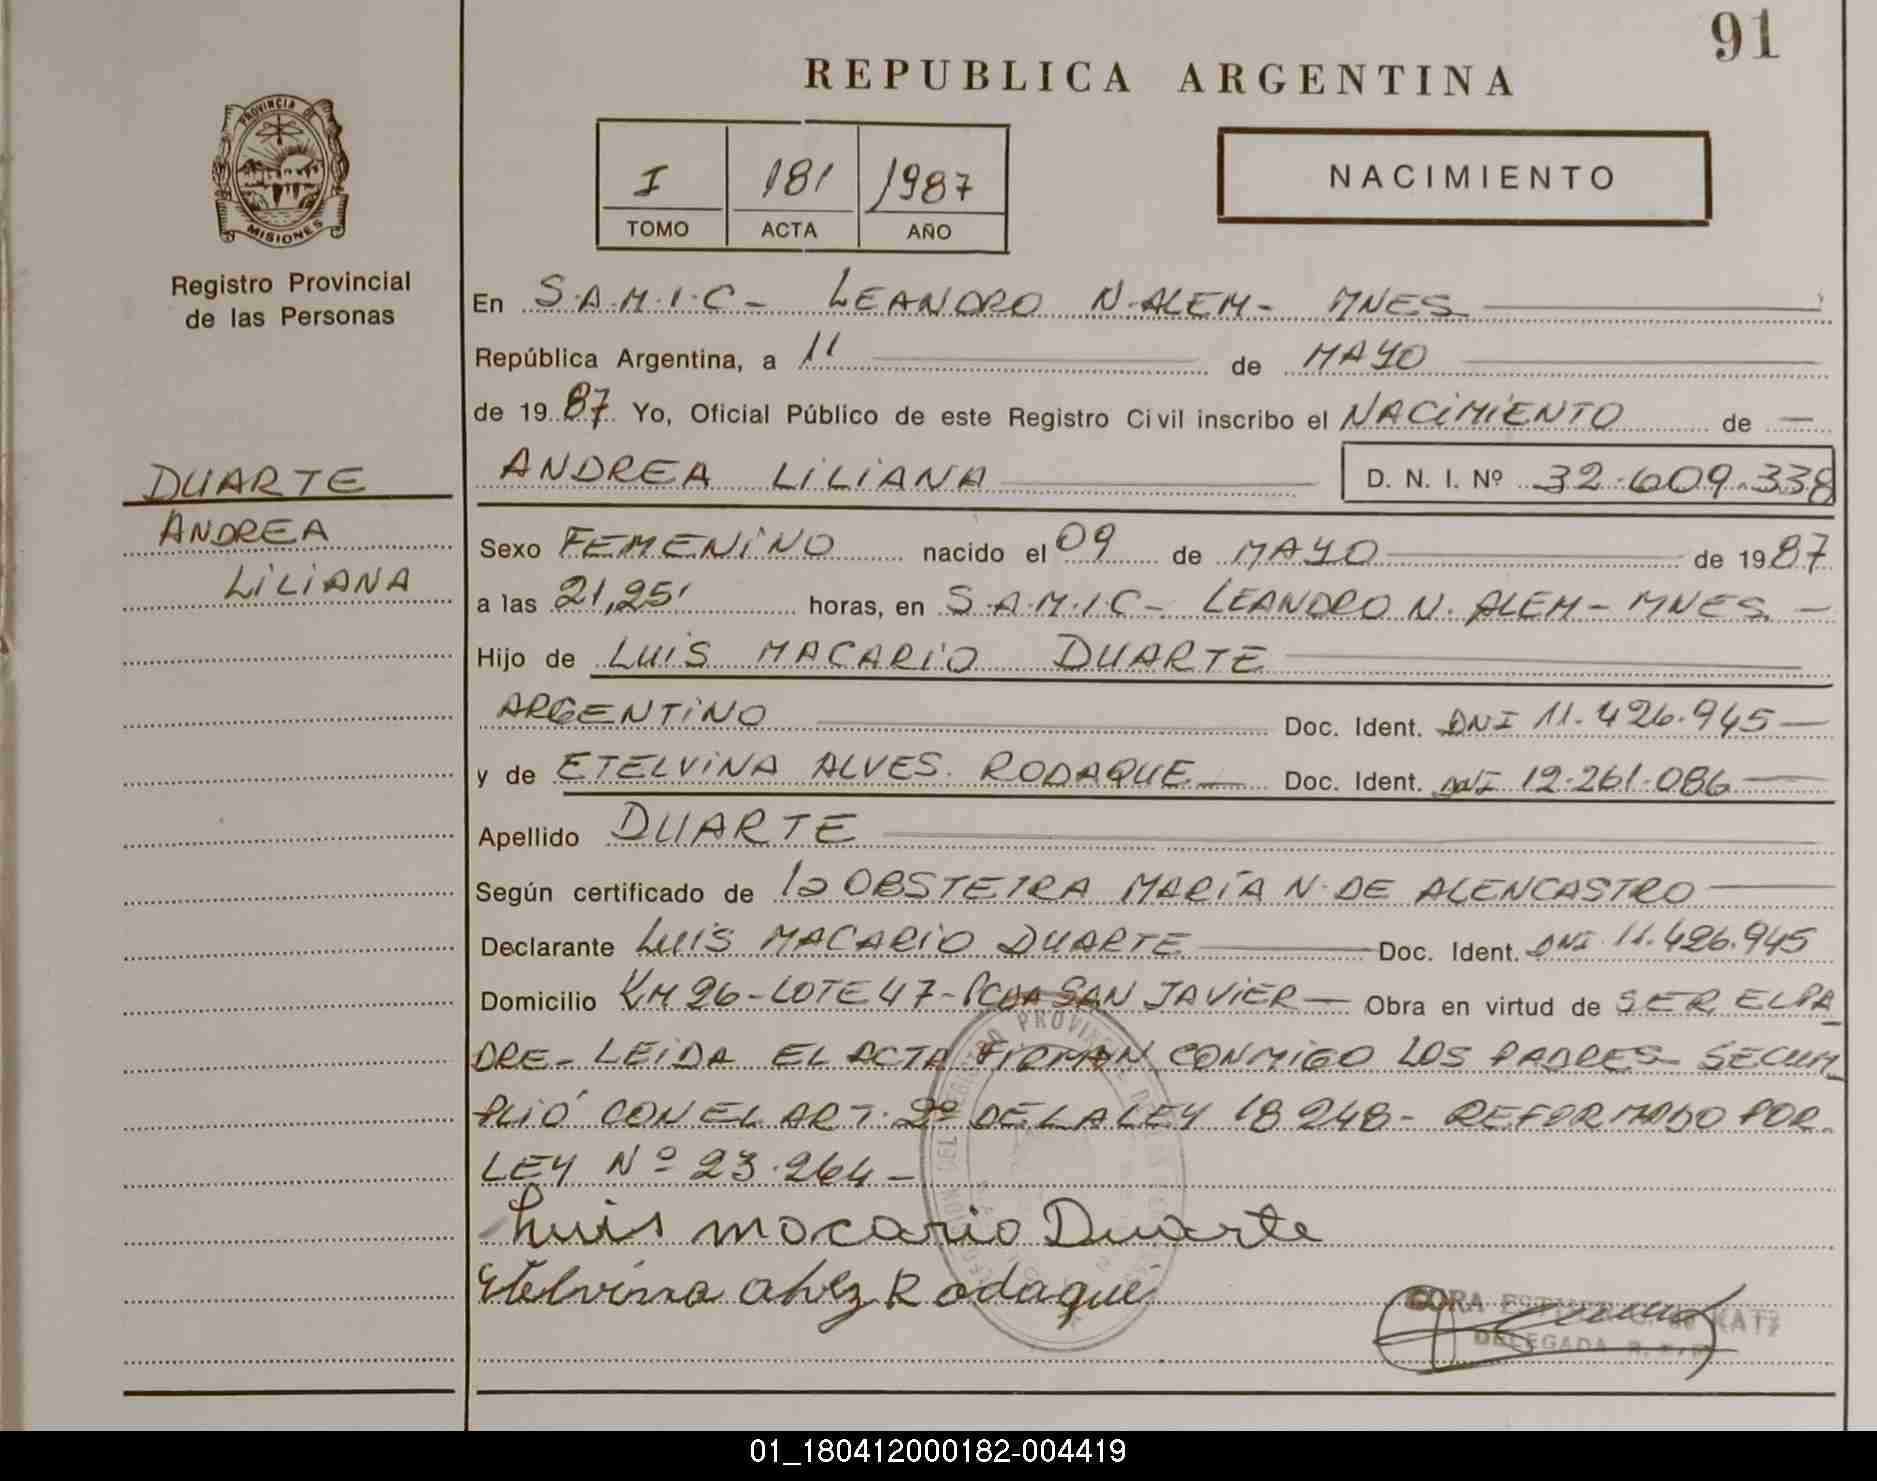 91
REPUBLICA ARGENTINA
PROVINCIA DE
MISIONES
Registro Provincial
de las Personas
I 181 1987
TOMO ACTA AÑO
NACIMIENTO
En S.A.M.I.C- LEANDRO N. ALEM- MNES
República Argentina, a 11 de MAYO
de 1987 Yo, Oficial Público de este Registro Civil inscribo el NACIMIENTO de
DUARTE
ANDREA
LILIANA
ANDREA LILIANA D. N. I. Nº 32.609.338
Sexo FEMENINO nacido el 09 de MAYO de 1987
a las 21,25' horas, en S.A.M.I.C- LEANDRO N. ALEM- MNES. -
Hijo de LUIS MACARIO DUARTE
ARGENTINO Doc. Ident. DNI 11.426.945-
y de ETELVINA ALVES. RODAQUE- Doc. Ident. DNI 12.261.086-
Apellido DUARTE
Según certificado de la OBSTETRA MARÍA N. DE ALENCASTRO
Declarante LUIS MACARIO DUARTE Doc. Ident. DNI 11.426.945
Domicilio KM 26-LOTE 47-PCDA SAN JAVIER- Obra en virtud de SER EL PA_
DRE- LEIDA EL ACTA FIRMAN CONMIGO LOS PADRES- SE CUM_
PLIÓ CON EL ART. 2º DE LA LEY 18248- REFORMADO POR
LEY Nº 23.264-
Luis Macario Duarte
Etelvina alvez Rodaque
KATZ
DELEGADA
01_180412000182-004419